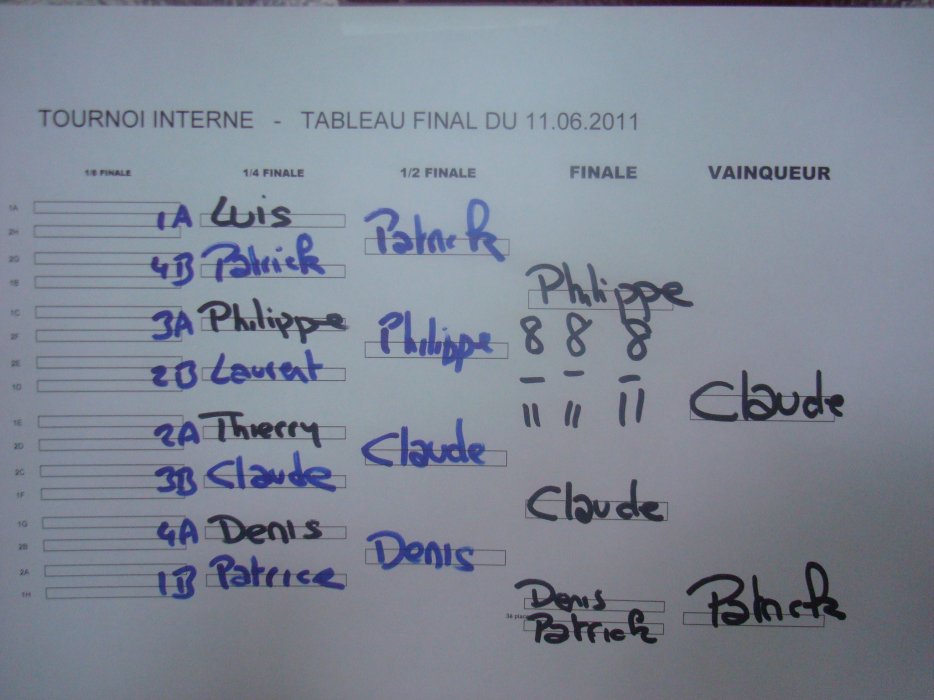 TOURNOI INTERNE - TABLEAU FINAL DU 11.06.2011
1/8 FINALE 1/4 FINALE 1/2 FINALE FINALE VAINQUEUR
1A
1A Luis
Patrick
2H
2G
4B Patrick
1B
Philippe
1C
3A Philippe
Philippe
8 8 8
2F
2E
2B Laurent
1D
11 11 11
Claude
1E
2A Thierry
Claude
2D
2C
3B Claude
1F
Claude
1G
4A Denis
Denis
2B
2A
1B Patrice
1H
Denis
3è place
Patrick
Patrick